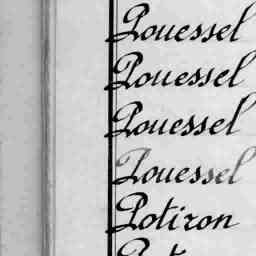 Pouessel
Pouessel
Pouessel
Pouessel
Potiron